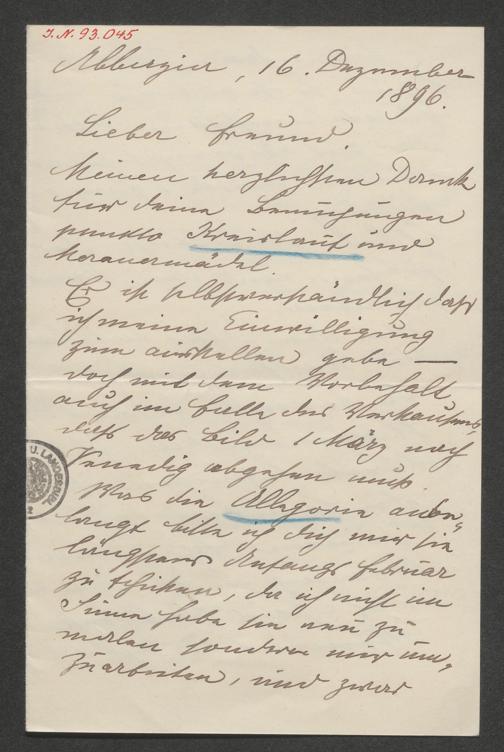 I.N. 93.045
Abbazia, 16. Dezember
1896.
Lieber Freund.
Meinen herzlichsten Dank
für deine Bemühungen
punkto Kreislauf und
Meranermädel.
Es ist selbstverständlich daß
ich meine Einwilligung
zum ausstellen gebe —
doch mit dem Vorbehalt
auch im Falle des Verkaufens,
daß das Bild 1 März nach
Venedig abgehen muß.
Was die Allegorie anbe„
langt bitte ich dich mir sie
längstens Anfangs Februar
zu schiken, da ich nicht im
Sinne habe sie neu zu
malen sondern nur um„
zuarbeiten, und zwar